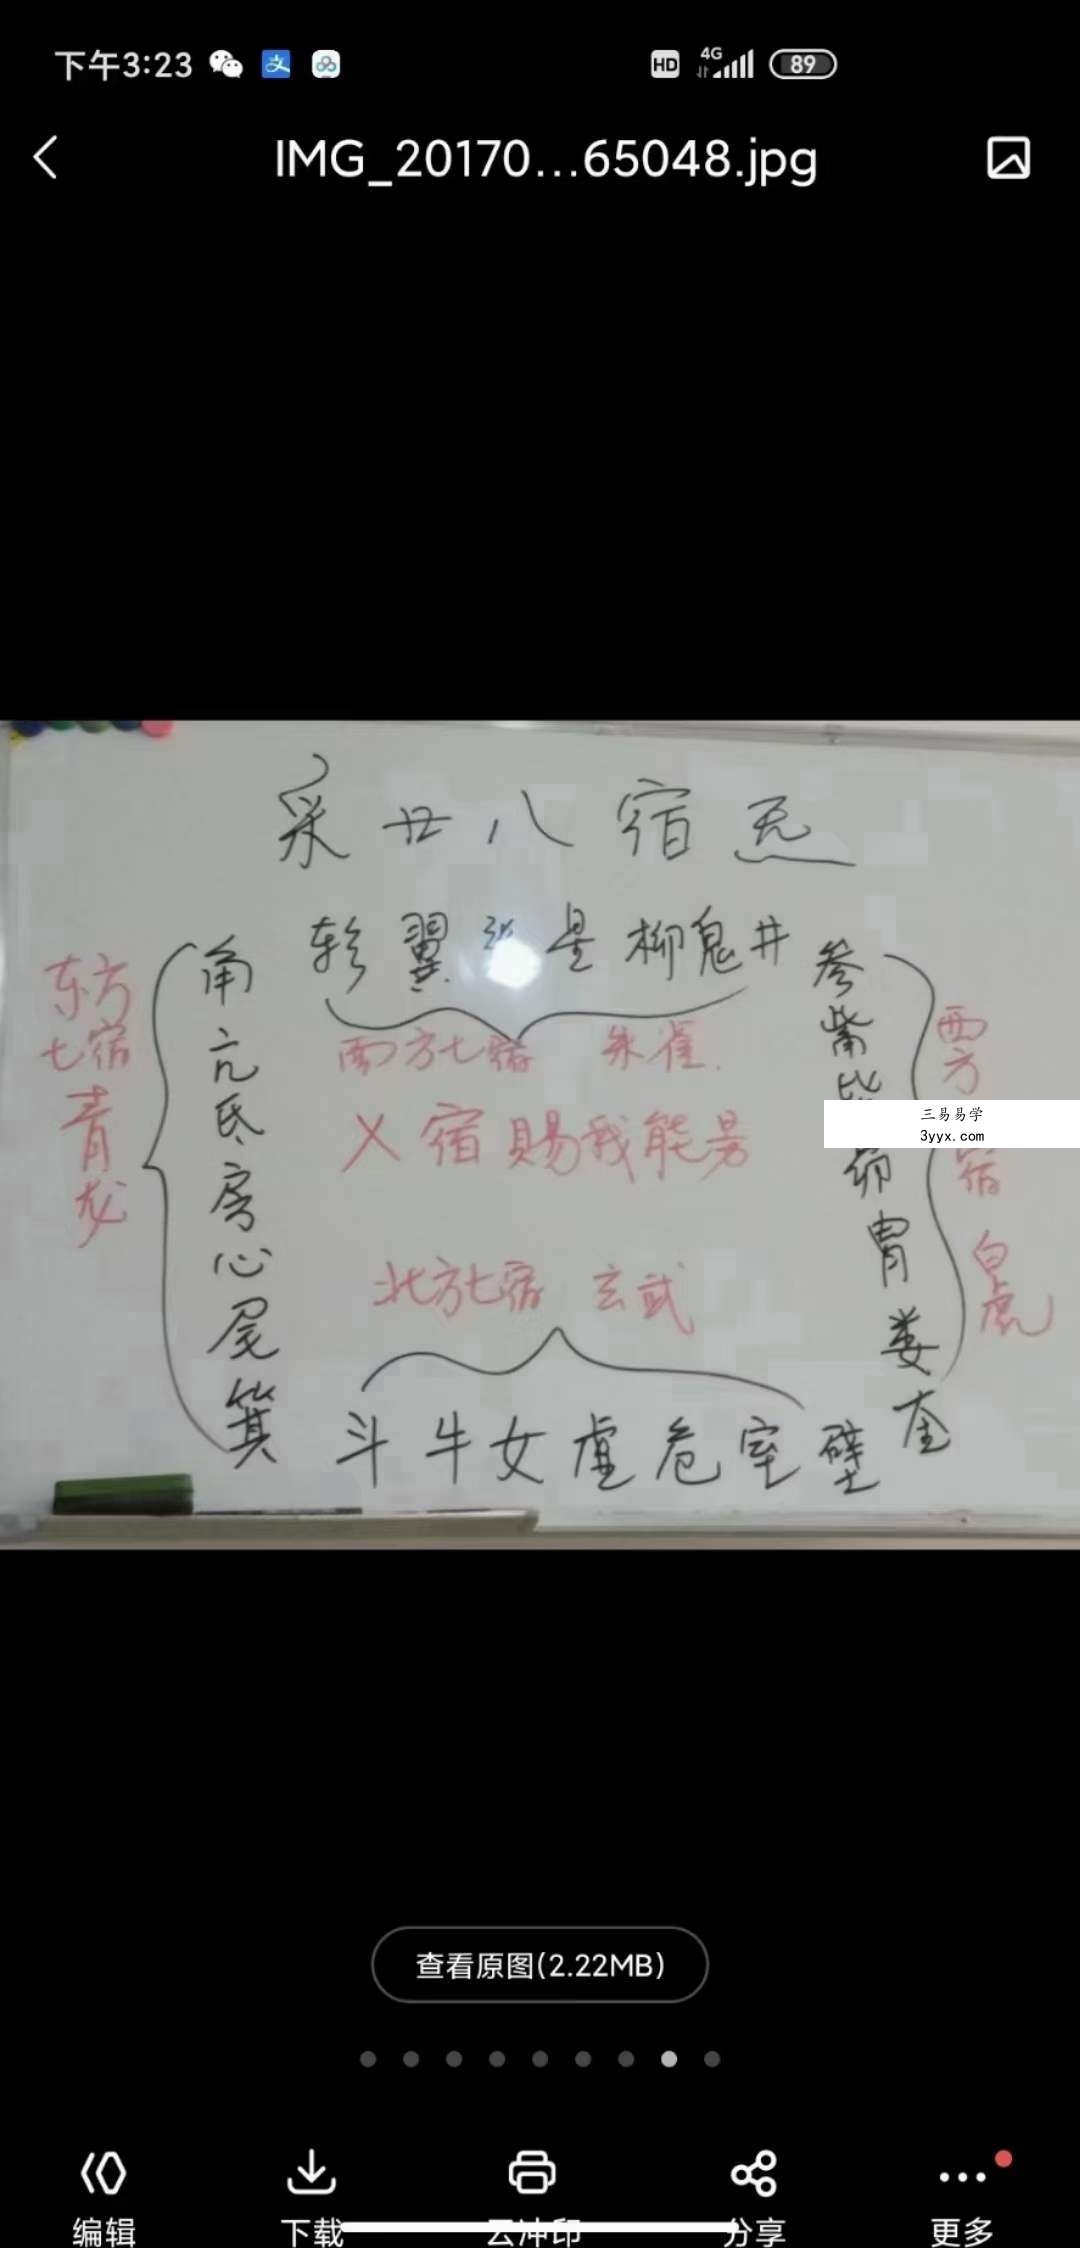 下午3:23
HD 4G 89
IMG_20170...65048.jpg
采廿八宿炁
轸翼张星柳鬼井
角亢氐房心尾箕
东方七宿青龙
南方七宿 朱雀
参觜毕昴胃娄奎
西方 宿 白虎
三易易学
3yyx.com
X宿賜我能量
北方七宿 玄武
斗牛女虚危室壁
查看原图(2.22MB)
编辑
下载
云冲印
分享
更多